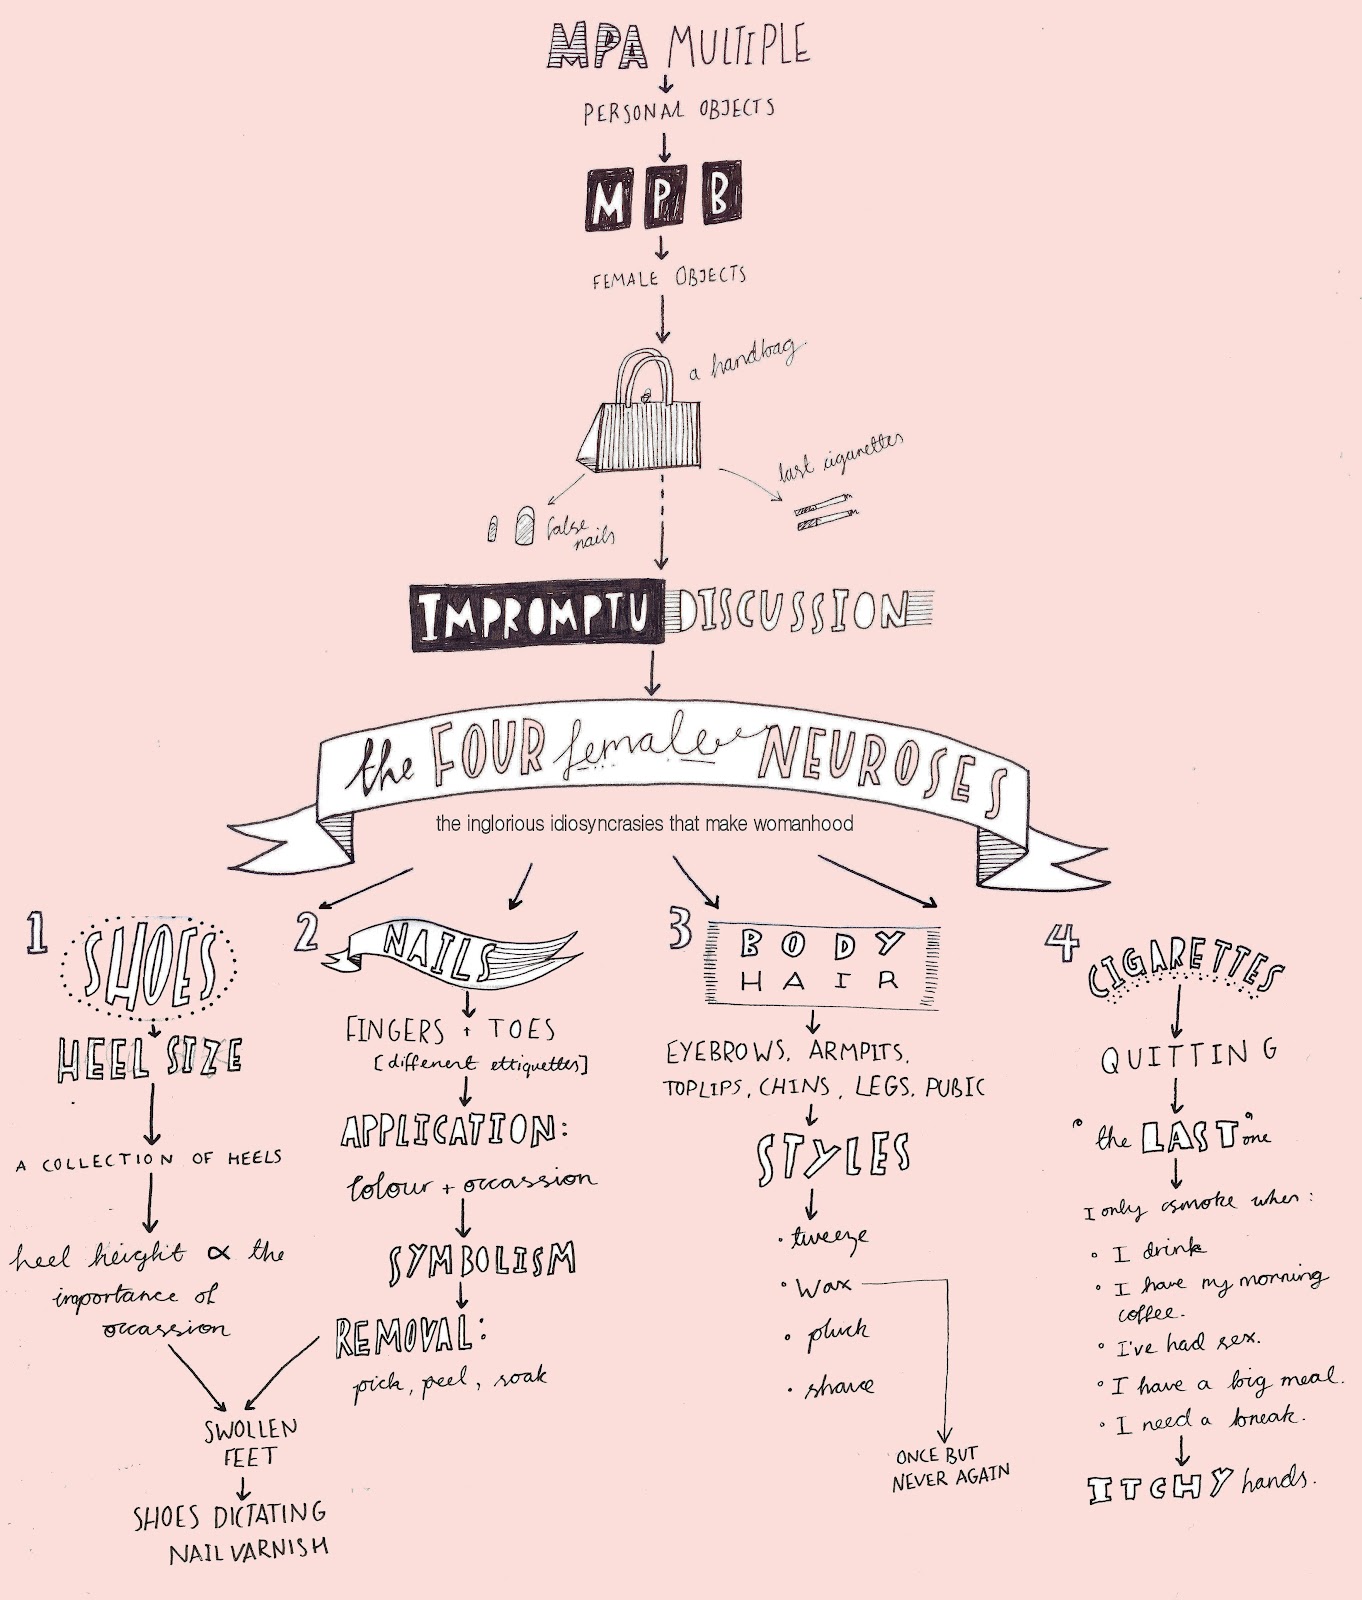 MPA MULTIPLE
PERSONAL OBJECTS
M P B
FEMALE OBJECTS
a handbag.
last cigarettes
false
nails
IMPROMPTU DISCUSSION
the FOUR female NEUROSES
the inglorious idiosyncrasies that make womanhood
1 SHOES
HEEL SIZE
A COLLECTION OF HEELS
heel height ∝ the
importance of
occassion
2 NAILS
FINGERS + TOES
[different ettiquettes]
APPLICATION:
Colour + occassion
SYMBOLISM
REMOVAL:
pick, peel, soak
SWOLLEN
FEET
SHOES DICTATING
NAIL VARNISH
3 BODY
HAIR
EYEBROWS, ARMPITS,
TOPLIPS, CHINS, LEGS, PUBIC
STYLES
• tweeze
• Wax
• pluck
• shave
ONCE BUT
NEVER AGAIN
4 CIGARETTES
QUITTING
"the LAST" one
I only smoke when:
• I drink
• I have my morning
coffee.
• I've had sex.
• I have a big meal.
• I need a break.
ITCHY hands.